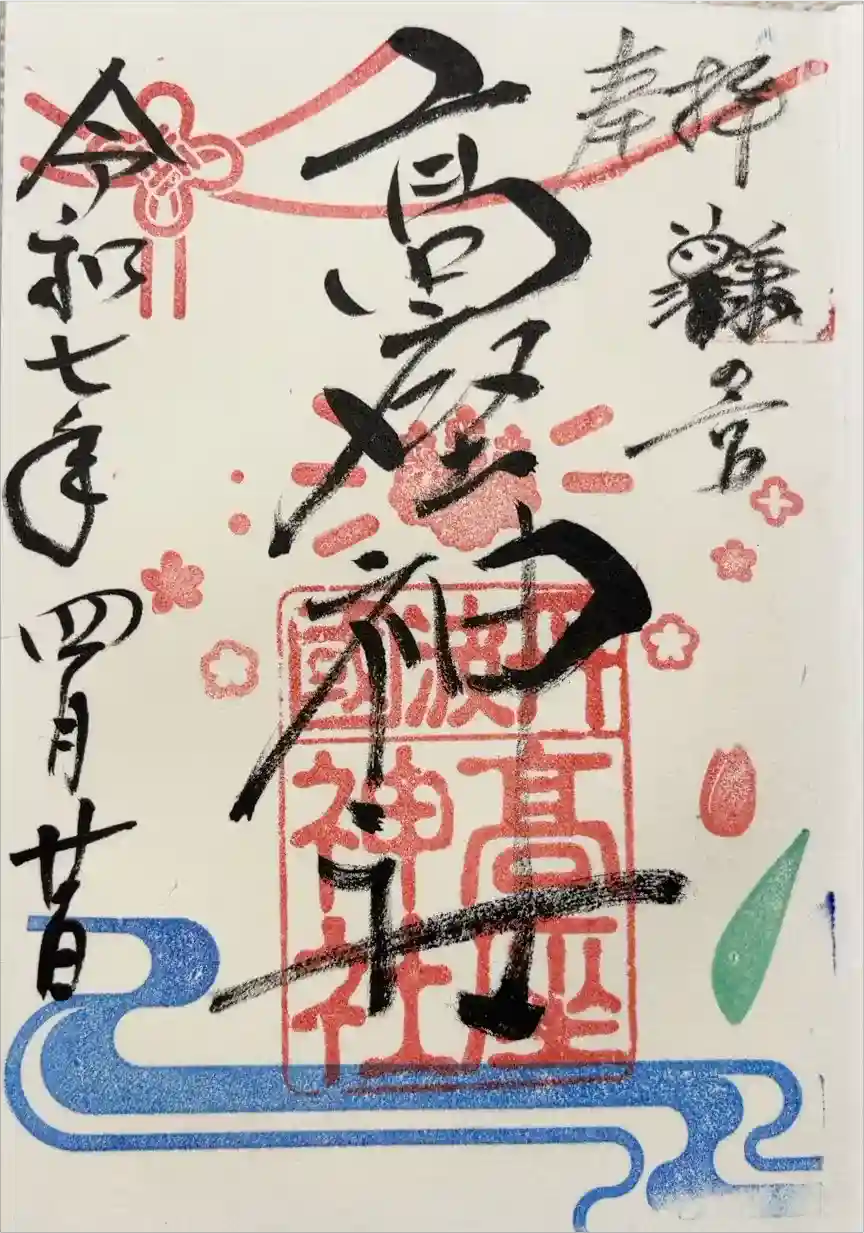 奉拝
蟻の宮
高座神社
丹波國
高座神社
令和七年四月廿日